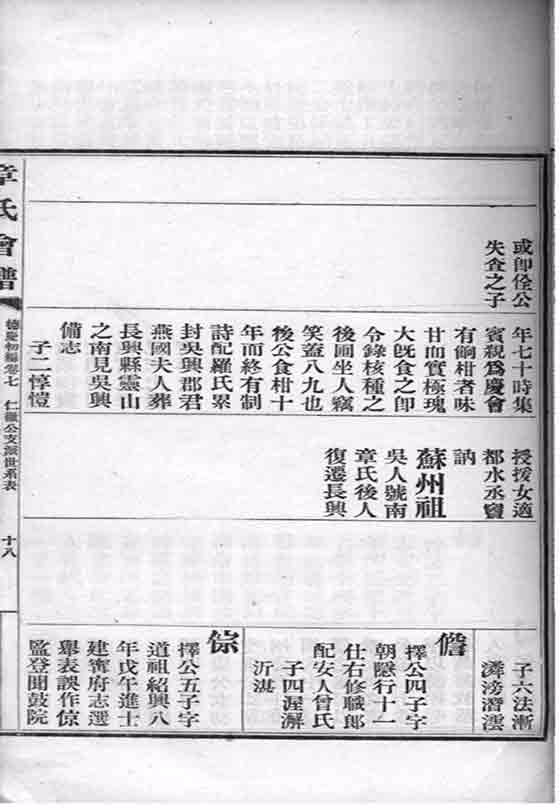 或卽佺公
失査之子
年七十時集
賓親爲慶會
有餉柑者味
甘而實極瑰
大旣食之卽
令錄核種之
後圃坐人竊
笑蓋八九也
後公食柑十
年而終有制
詩配羅氏累
封吳興郡君
燕國夫人葬
長興縣靈山
之南見吳興
備志
子二惇愷
授援女適
都水丞竇
訥
蘇州祖
吳人號南
章氏後人
復遷長興
子六法漸
潾滂潛澐
儋
擇公四子字
朝隱行十一
仕右修職郎
配安人曾氏
子四渥澥
沂湛
倧
擇公五子字
道祖紹興八
年戊午進士
建寧府志選
舉表誤作倞
監登聞鼓院
章氏會譜
德慶初編卷七
公支派世系表
十八